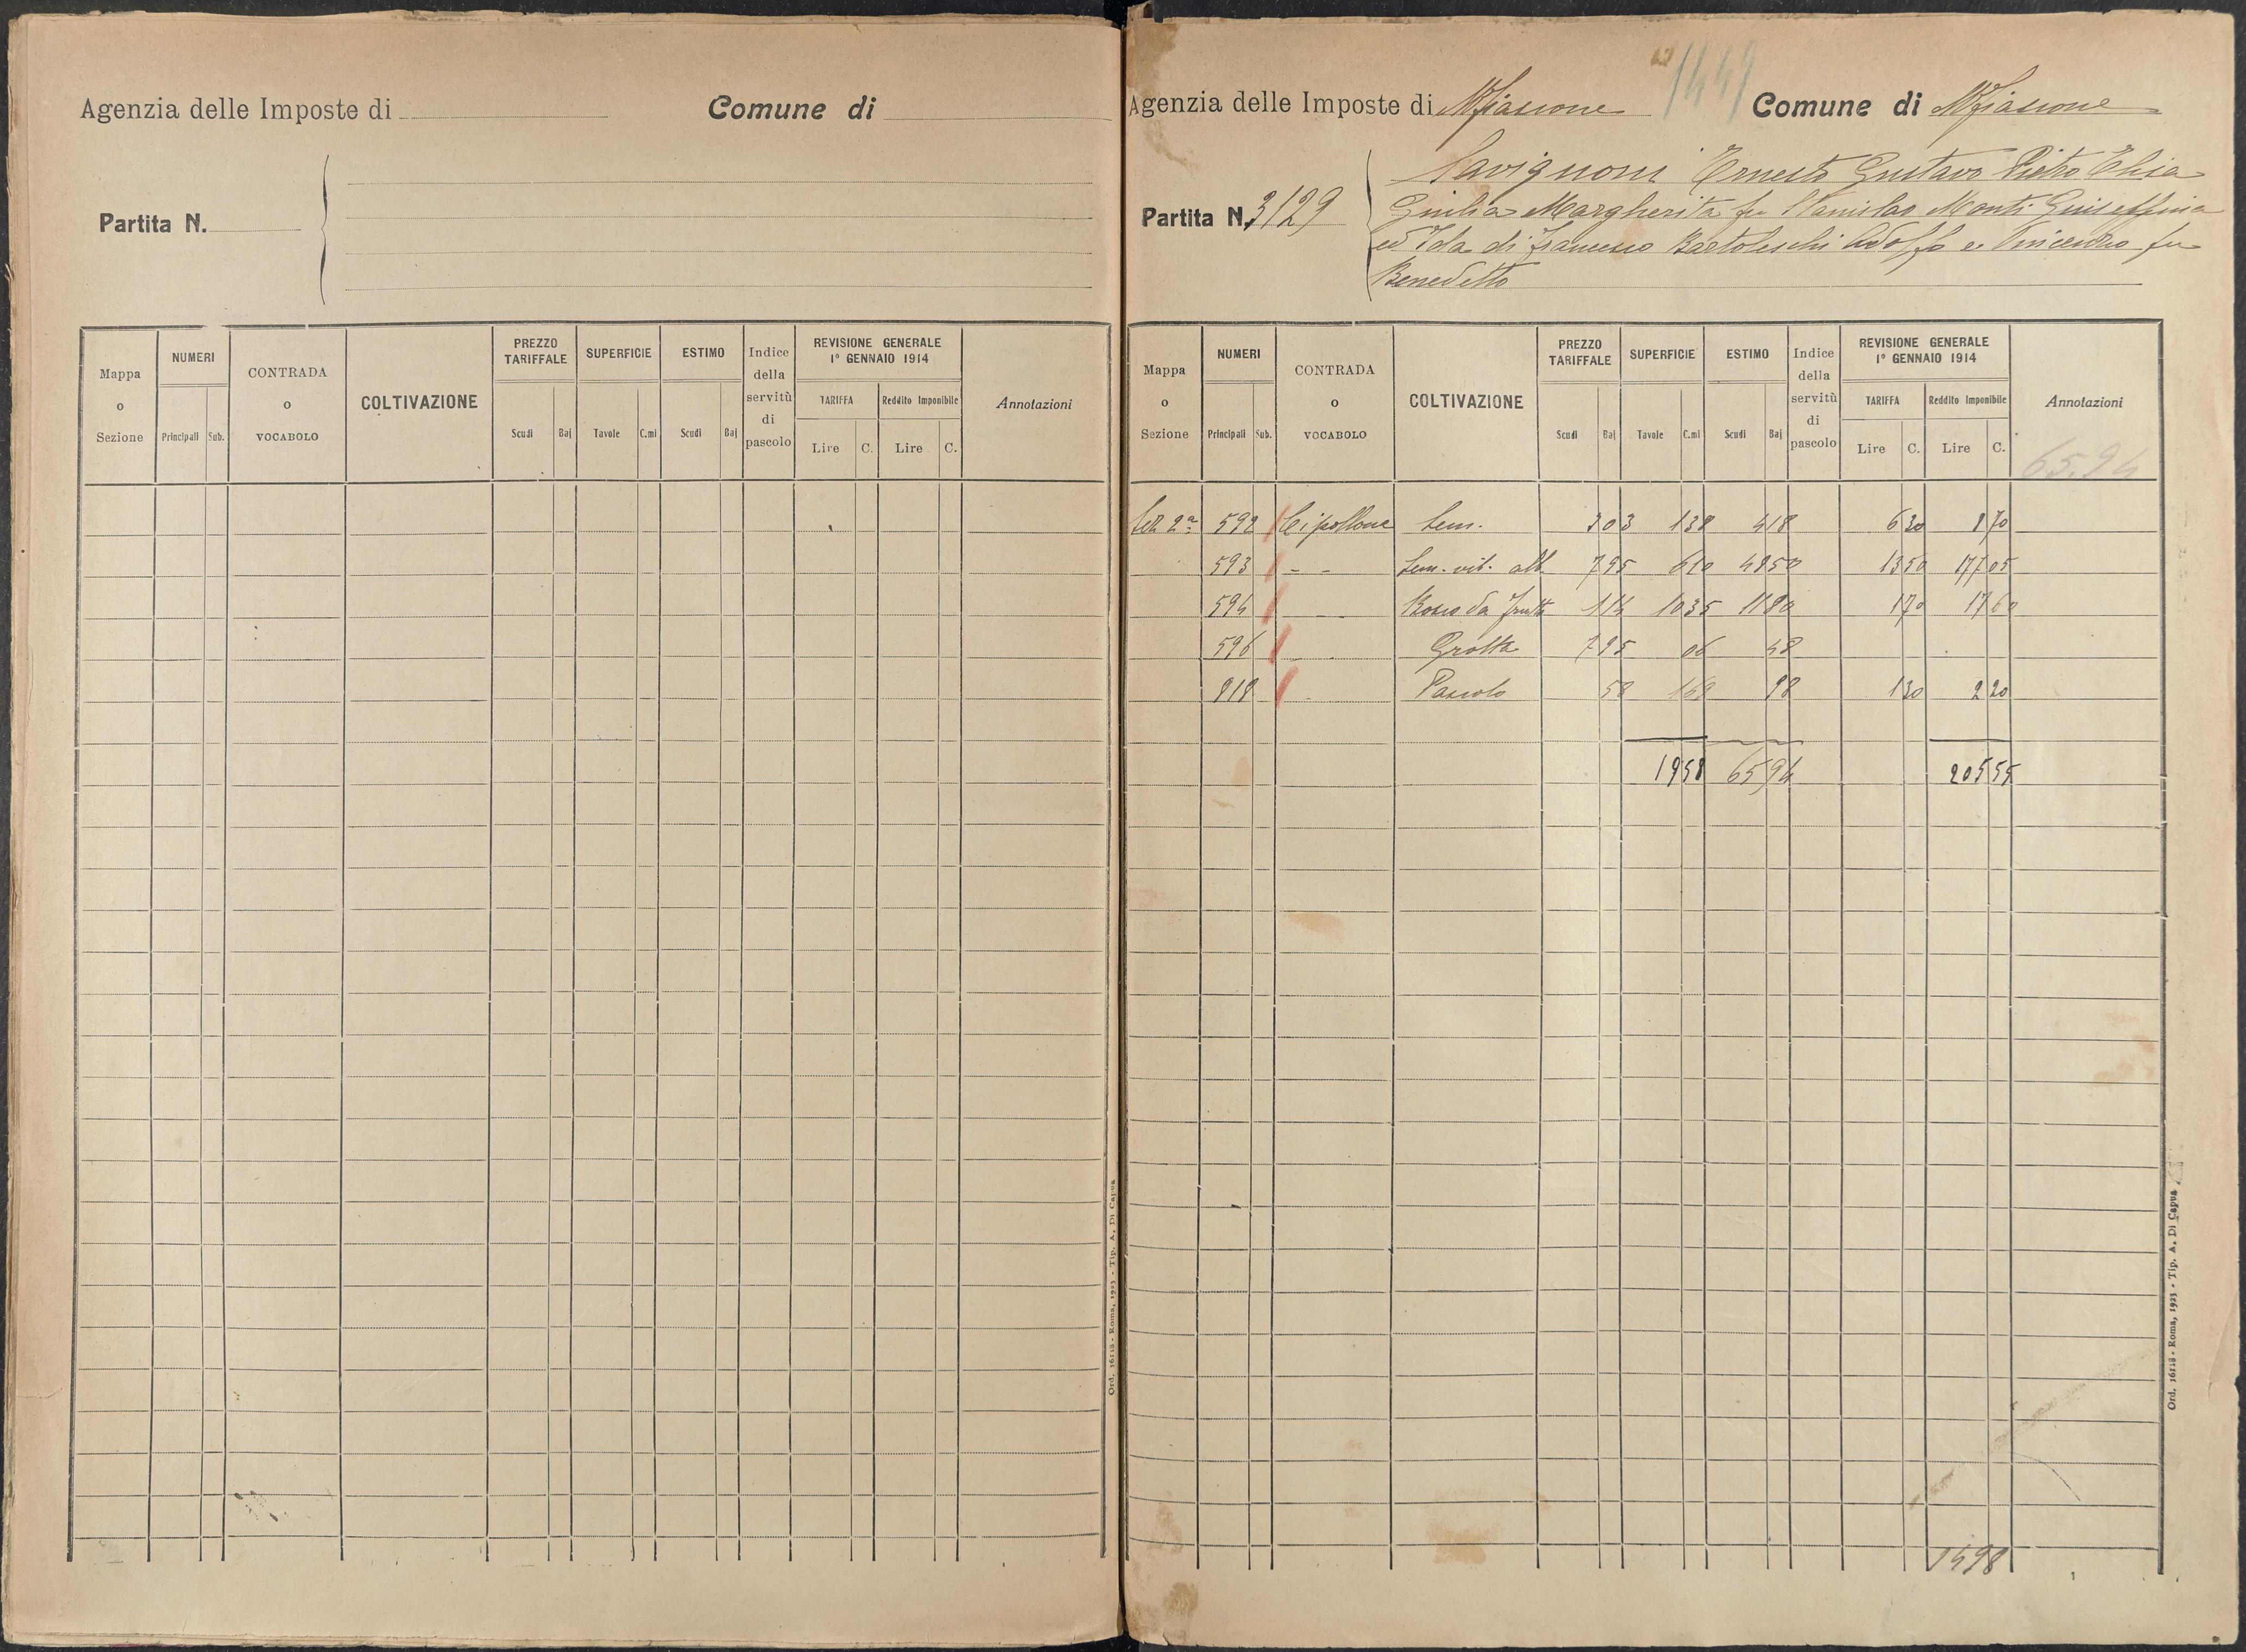 Agenzia delle Imposte di
Comune di
Partita N.
Mappa o Sezione
NUMERI
Principali Sub.
CONTRADA o VOCABOLO
COLTIVAZIONE
PREZZO TARIFFALE
Scudi Baj
SUPERFICIE
Tavole C.mi
ESTIMO
Scudi Baj
Indice della servitù di pascolo
REVISIONE GENERALE
1° GENNAIO 1914
TARIFFA
Lire C.
Reddito Imponibile
Lire C.
Annotazioni
Ord. 16118 - Roma, 1923 - Tip. A. Di Capua
1449
Agenzia delle Imposte di Mfiascone
Comune di Mfiascone
Partita N. 3129
Savignoni Ernesto Gustavo Pietro Elisa
Giulia Margherita fu Stanislao Monti Giuseffina
ed Ida di Francesco Bartoleschi Adolfo e Vincenzo fu
Benedetto
Mappa o Sezione
NUMERI
Principali Sub.
CONTRADA o VOCABOLO
COLTIVAZIONE
PREZZO TARIFFALE
Scudi Baj
SUPERFICIE
Tavole C.mi
ESTIMO
Scudi Baj
Indice della servitù di pascolo
REVISIONE GENERALE
1° GENNAIO 1914
TARIFFA
Lire C.
Reddito Imponibile
Lire C.
Annotazioni
65.94
Sez 2ª 592 Cipollone Sem. 303 138 418 630 870
593 - - Sem. vit. alb. 795 610 4850 1350 17705
594 Bosco da frutto 114 1035 1180 170 1760
596 Grotta 795 06 48
818 Pascolo 58 169 98 130 220
1958 6594 20555
1498
Ord. 16118 - Roma, 1923 - Tip. A. Di Capua